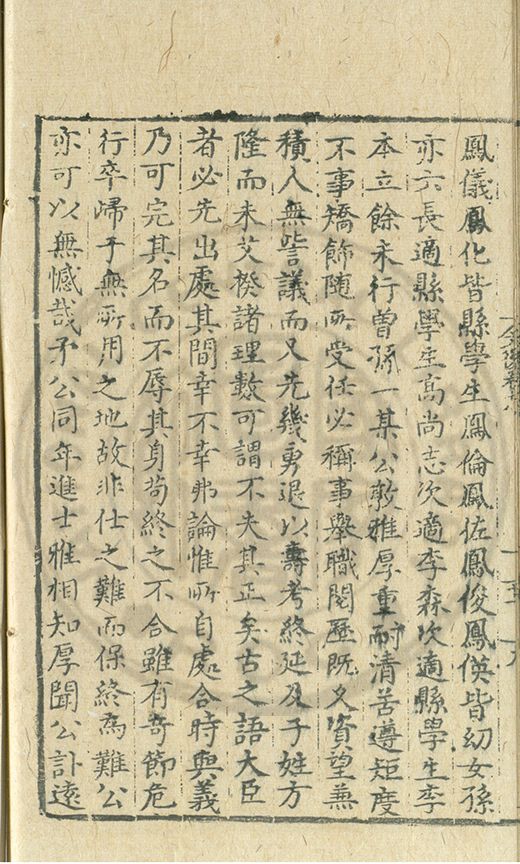 鳳儀鳳化皆縣學生鳳倫鳳佐鳳俊鳳僙皆幼女孫
亦六長適縣學生高尚志次適李森次適縣學生李
本立餘未行曾孫一某公敦雅厚重耐清苦遵矩度
不事矯飾隨所受任必稱事舉職閱歷既久資望兼
積人無訾議而又先幾勇退以壽考終延及子姓方
隆而未艾揆諸理數可謂不失其正矣古之語大臣
者必先出處其間幸不幸弗論惟所自處合時與義
乃可完其名而不辱其身苟終之不合雖有奇節危
行卒歸于無所用之地故非仕之難而保終為難公
亦可以無憾哉予公同年進士雅相知厚聞公訃遠